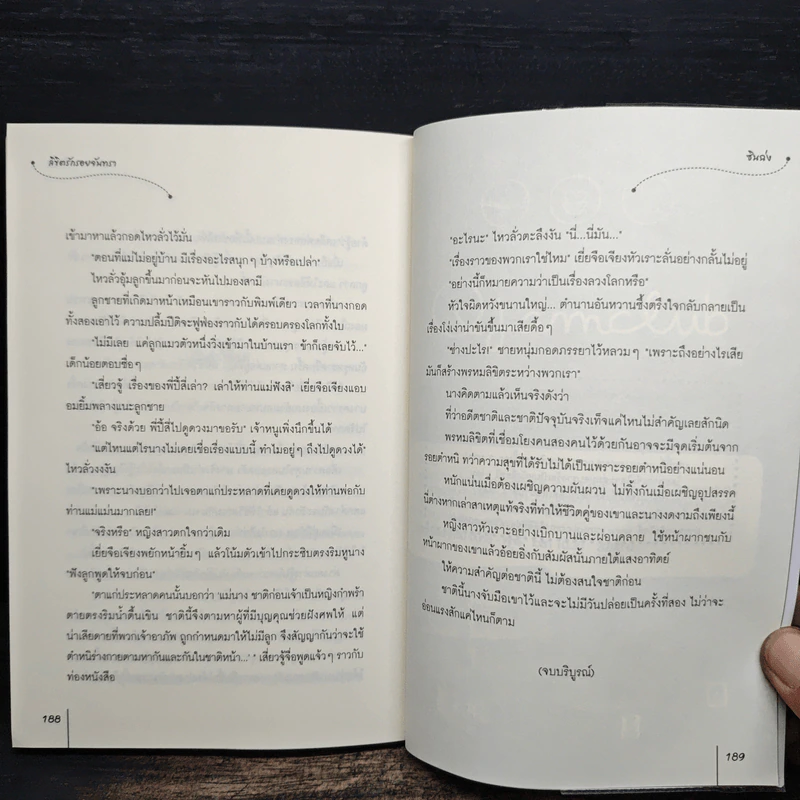 ลิขิตรักรอยจันทรา
เข้ามาหาแล้วกอดไหวลั่วไว้มั่น
"ตอนที่แม่ไม่อยู่บ้าน มีเรื่องอะไรสนุกๆ บ้างหรือเปล่า"
ไหวลั่วอุ้มลูกขึ้นมาก่อนจะหันไปมองสามี
ลูกชายที่เกิดมาหน้าเหมือนเขาราวกับพิมพ์เดียว เวลาที่นางกอด
ทั้งสองเอาไว้ ความปลื้มปีติจะฟูฟ่องราวกับได้ครอบครองโลกทั้งใบ
"ไม่มีเลย แค่ลูกแมวตัวหนึ่งวิ่งเข้ามาในบ้านเรา ข้าก็เลยจับไว้..."
เด็กน้อยตอบซื่อๆ
"เสี่ยวจู้ เรื่องของพี่ปี้สี่เล่า? เล่าให้ท่านแม่ฟังสิ" เยี่ยจือเจียงแอบ
อมยิ้มพลางแนะลูกชาย
"อ้อ จริงด้วย พี่ปี้สี่ไปดูดวงมาขอรับ" เจ้าหนูเพิ่งนึกขึ้นได้
"แต่ไหนแต่ไรนางไม่เคยเชื่อเรื่องแบบนี้ ทำไมอยู่ๆ ถึงไปดูดวงได้"
ไหวลั่วงงงัน
"เพราะนางบอกว่าไปเจอตาแก่ประหลาดที่เคยดูดวงให้ท่านพ่อกับ
ท่านแม่แม่นมากเลย!"
"จริงหรือ" หญิงสาวตกใจกว่าเดิม
เยี่ยจือเจียงพยักหน้ายิ้มๆ แล้วโน้มตัวเข้าไปกระซิบตรงริมหูนาง
"ฟังลูกพูดให้จบก่อน"
"ตาแก่ประหลาดคนนั้นบอกว่า 'แม่นาง ชาติก่อนเจ้าเป็นหญิงกำพร้า
ตายตรงริมน้ำตื้นเขิน ชาตินี้จึงตามหาผู้ที่มีบุญคุณช่วยฝังศพให้ แต่
น่าเสียดายที่พวกเจ้าอาภัพ ถูกกำหนดมาให้ไม่มีลูก จึงสัญญากันว่าจะใช้
ตำหนิร่างกายตามหากันและกันในชาติหน้า...' " เสี่ยวจู้จื่อพูดแจ้วๆ ราวกับ
ท่องหนังสือ
188
ชินฉ่ง
"อะไรนะ" ไหวลั่วตะลึงงัน "นี่...นี่มัน..."
"เรื่องราวของพวกเราใช่ไหม" เยี่ยจือเจียงหัวเราะลั่นอย่างกลั้นไม่อยู่
"อย่างนี้ก็หมายความว่าเป็นเรื่องลวงโลกหรือ"
หัวใจผิดหวังขนานใหญ่... ตำนานอันหวานซึ้งตรึงใจกลับกลายเป็น
เรื่องโง่เง่าน่าขันขึ้นมาเสียดื้อๆ
"ช่างปะไร!" ชายหนุ่มกอดภรรยาไว้หลวมๆ "เพราะถึงอย่างไรเสีย
มันก็สร้างพรหมลิขิตระหว่างพวกเรา"
นางคิดตามแล้วเห็นจริงดังว่า
ที่ว่าอดีตชาติและชาติปัจจุบันจริงเท็จแค่ไหนไม่สำคัญเลยสักนิด
พรหมลิขิตที่เชื่อมโยงคนสองคนไว้ด้วยกันอาจจะมีจุดเริ่มต้นจาก
รอยตำหนิ ทว่าความสุขที่ได้รับไม่ได้เป็นเพราะรอยตำหนิอย่างแน่นอน
หนักแน่นเมื่อต้องเผชิญความผันผวน ไม่ทิ้งกันเมื่อเผชิญอุปสรรค
นี่ต่างหากเล่าสาเหตุแท้จริงที่ทำให้ชีวิตคู่ของเขาและนางงดงามถึงเพียงนี้
หญิงสาวหัวเราะอย่างเบิกบานและผ่อนคลาย ใช้หน้าผากชนกับ
หน้าผากของเขาแล้วอ้อยอิ่งกับสัมผัสนั้นภายใต้แสงอาทิตย์
ให้ความสำคัญต่อชาตินี้ ไม่ต้องสนใจชาติก่อน
ชาตินี้นางจับมือเขาไว้และจะไม่มีวันปล่อยเป็นครั้งที่สอง ไม่ว่าจะ
อ่อนแรงสักแค่ไหนก็ตาม
(จบบริบูรณ์)
189